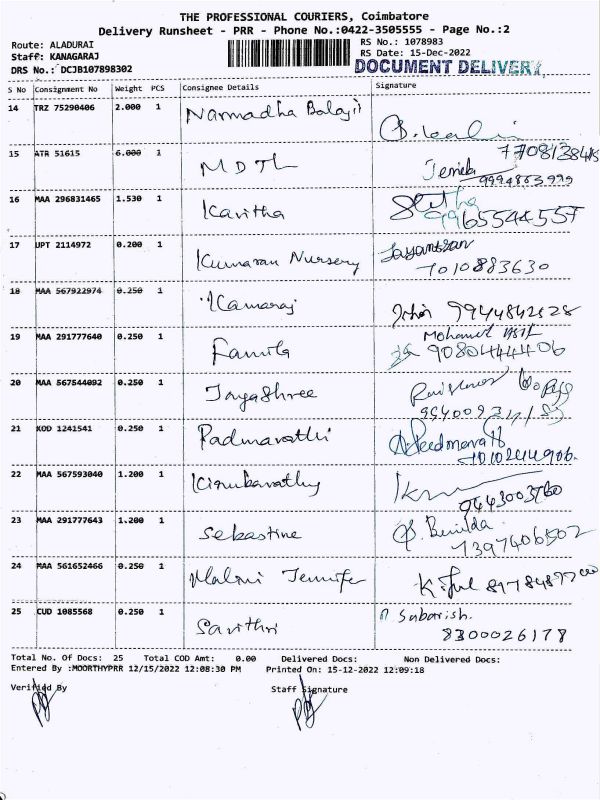 THE PROFESSIONAL COURIERS, Coimbatore
Delivery Runsheet - PRR - Phone No.:0422-3505555 - Page No.:2
Route: ALADURAI
Staff: KANAGARAJ
DRS No.: DCJB107898302
RS No.: 1078983
RS Date: 15-Dec-2022
DOCUMENT DELIVERY
S No Consignment No Weight PCS Consignee Details Signature
14 TRZ 75290406 2.000 1 Narmadha Balaji
15 ATR 51615 6.000 1 MDTL
9994883999
16 MAA 296831465 1.530 1 Kavitha
9965544557
17 UPT 2114972 0.200 1 Kumaran Nursery
7010883630
18 MAA 567922974 0.250 1 Kamaraj
19 MAA 291777640 0.250 1 Mohamed
9080444406
20 MAA 567544092 0.250 1 JayaShree
21 KOD 1241541 0.250 1 Padmavathi
22 MAA 567593040 1.200 1 Kirubavathy
9443003760
23 MAA 291777643 1.200 1 Sebastine B. Benilda
7397406502
24 MAA 561652466 0.250 1 Malini Jennifer
25 CUD 1085568 0.250 1 Savithri Sabarish.
8300026178
Total No. Of Docs: 25 Total COD Amt: 0.00 Delivered Docs: Non Delivered Docs:
Entered By :MOORTHYPRR 12/15/2022 12:08:30 PM Printed On: 15-12-2022 12:09:18
Verified By Staff Signature